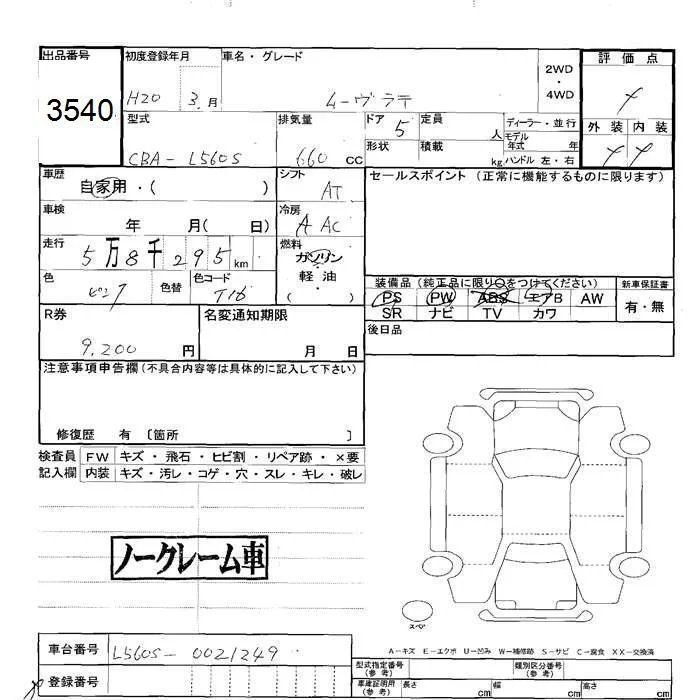 出品番号 初度登録年月 車名・グレード 評価点
3540 H20 3.月 ムーヴラテ 2WD・4WD
型式 排気量 ドア 定員 ディーラー・並行 外装 内装
CBA-L560S 660 CC 5 人 モデル年式 年
形状 積載 kg ハンドル 左・右
車歴 シフト セールスポイント (正常に機能するものに限ります)
自家用・( ) AT
車検 冷房
年 月( 日) A AC
走行 燃料
5万8千295km ガソリン
軽油
・
( )
色 色替 色コード
ピンク T16
装備品 (純正品に限り○をつけてください) 新車保証書
PS PW ABS エアB AW 有・無
SR ナビ TV カワ
R券 名変通知期限 後日品
9,200 円 月 日
注意事項申告欄 (不具合内容等は具体的に記入して下さい)
修復歴 有 〔箇所 〕
検査員 FW キズ・飛石・ヒビ割・リペア跡・×要
記入欄 内装 キズ・汚レ・コゲ・穴・スレ・キレ・破レ
ノークレーム車
スペア
A-キズ E-エクボ U-凹み W-補修跡 S-サビ C-腐食 XX-交換済
車台番号 L560S-0021249
型式指定番号 (参考) 類別区分番号 (参考)
登録番号
車庫証明用 (参考) 長さ cm 幅 cm 高さ cm